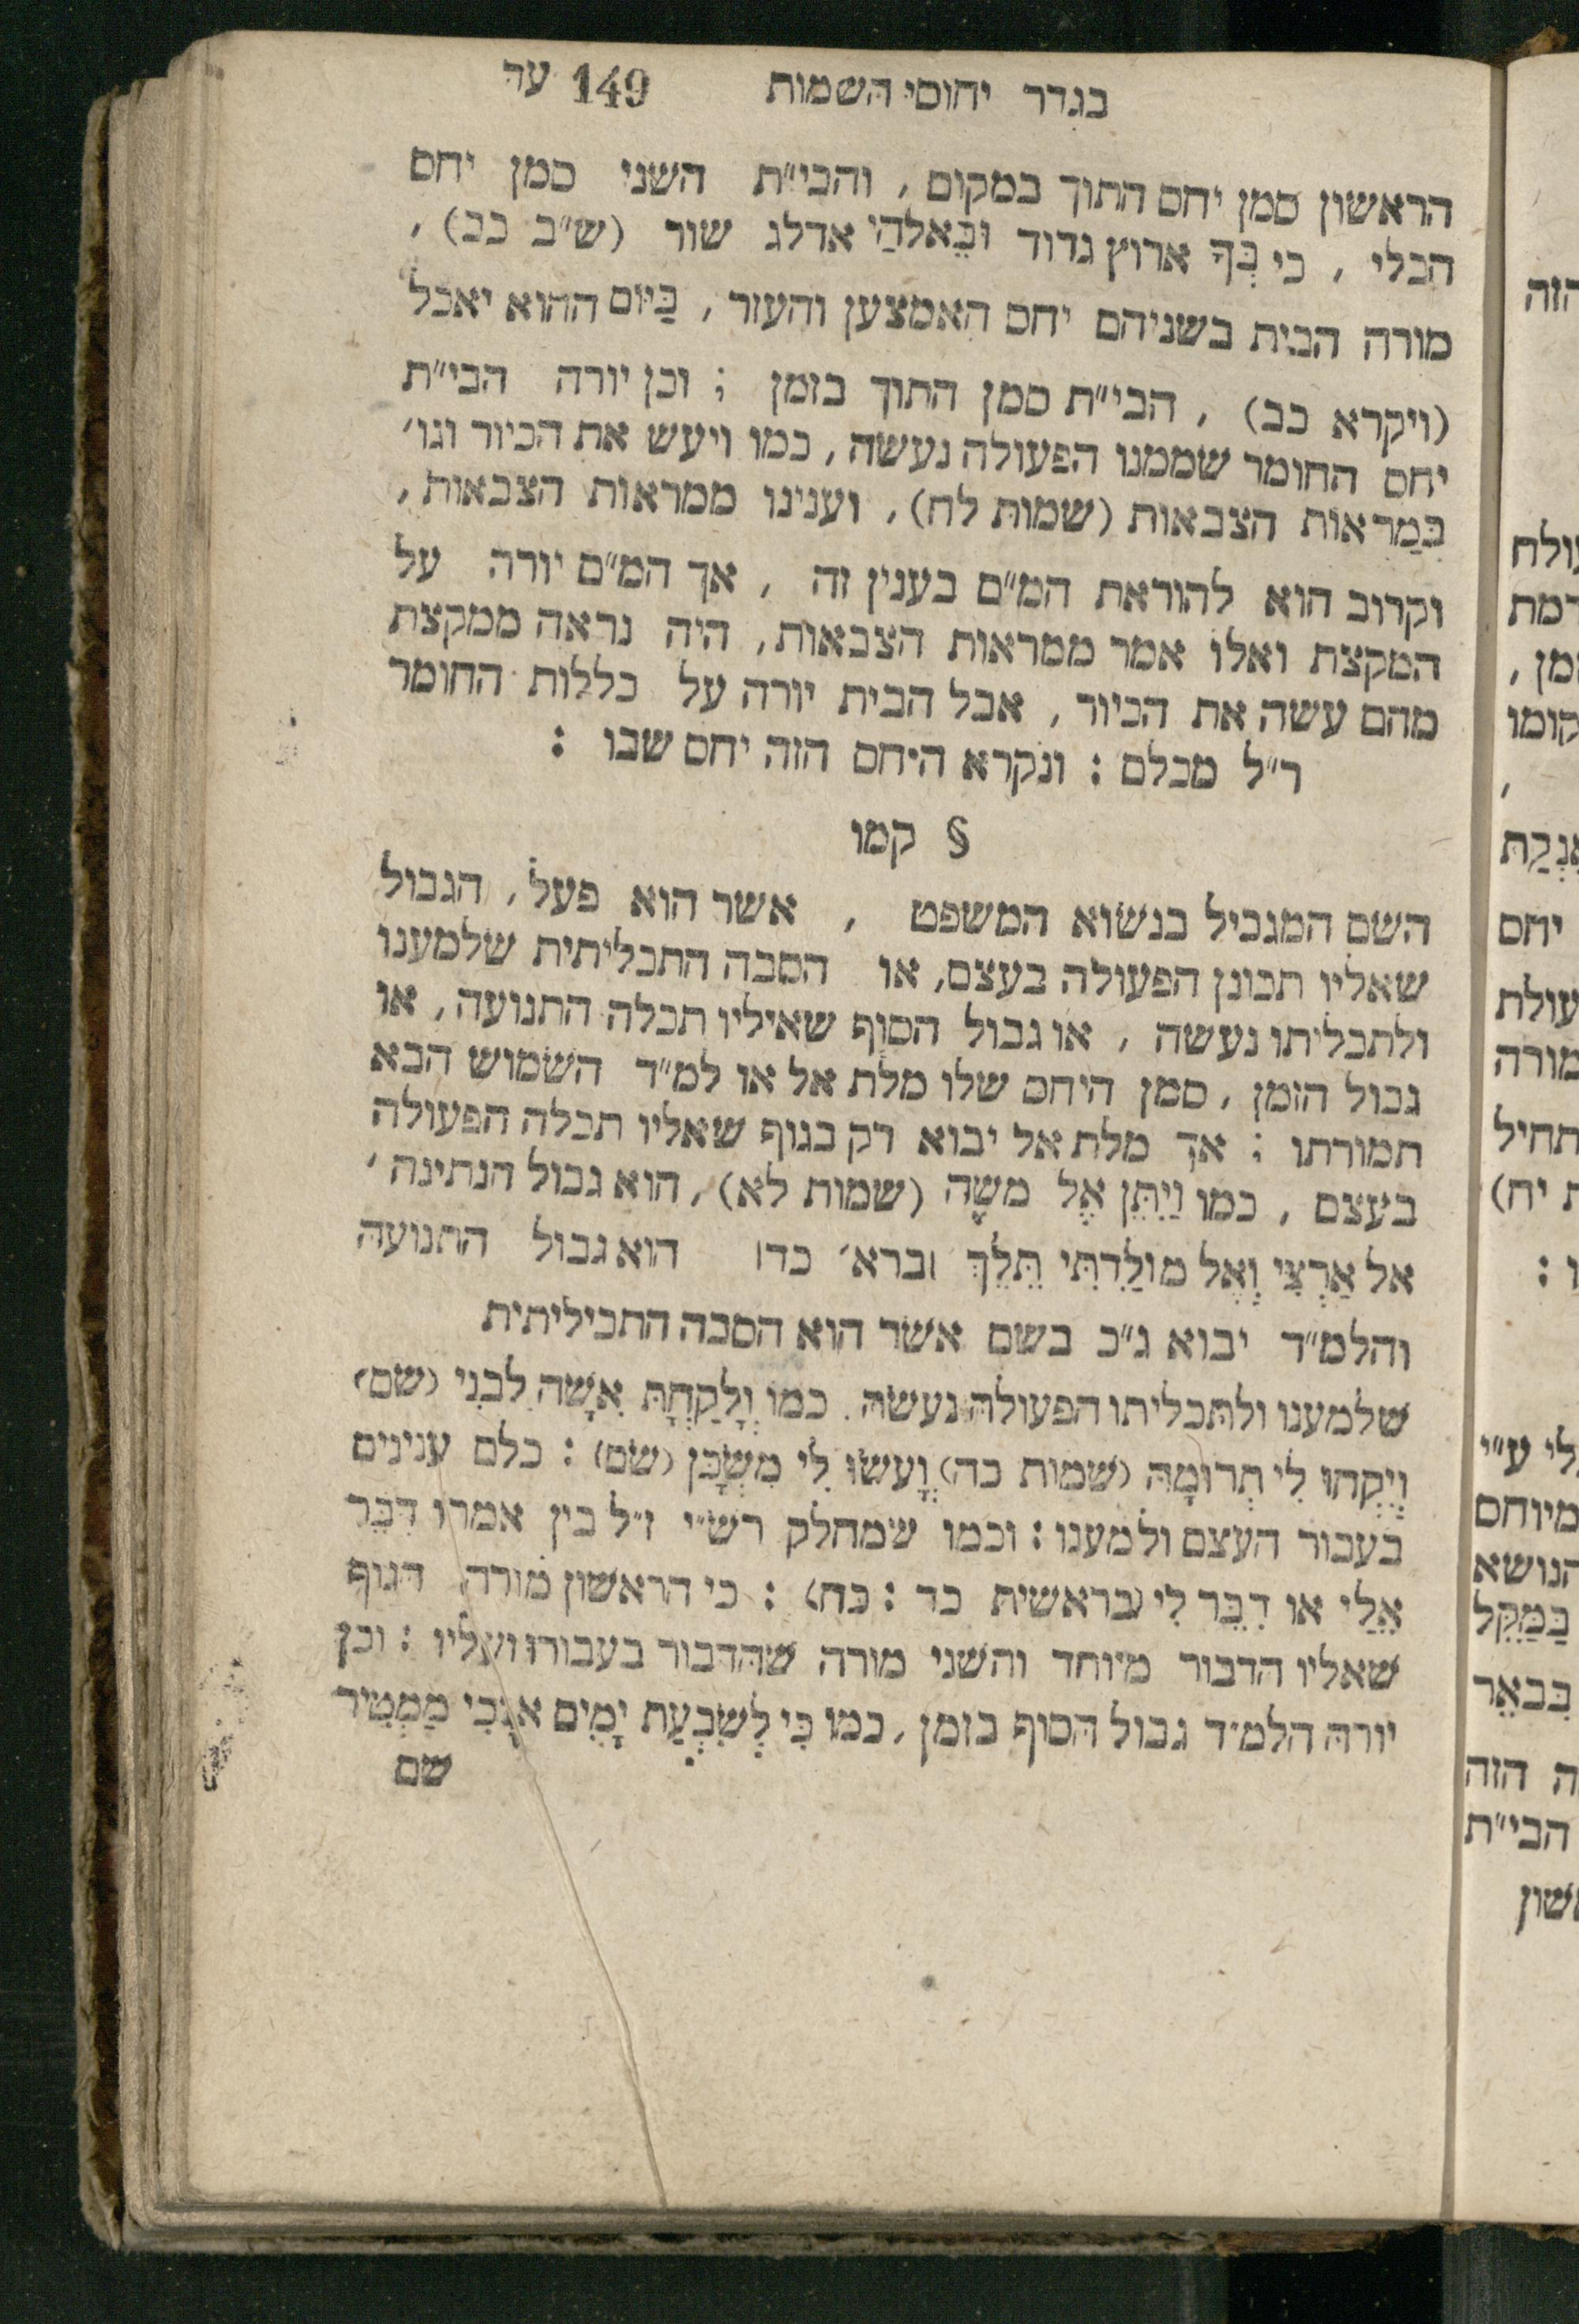 בגדר יחוסי השמות 149 עד
הראשון סמן יחס התוך במקום, והבי״ת השני סמן יחס
הכלי, כי בְּךָ ארוץ גדוד וּבֵאלֹהַי אדלג שור (ש״ב כב),
מורה הבית בשניהם יחס האמצעי והעזר, בַּיום ההוא יאכל
(ויקרא כב), הבי״ת סמן התוך בזמן; וכן יורה הבי״ת
יחס החומר שממנו הפעולה נעשה, כמו ויעש את הכיור וגו׳
בְּמַראות הצבאות (שמות לח), וענינו ממראות הצבאות,
וקרוב הוא להוראת המ״ם בענין זה, אך המ״ם יורה על
המקצת ואלו אמר ממראות הצבאות, היה נראה ממקצת
מהם עשה את הכיור, אבל הבית יורה על כללות החומר
ר״ל מכלם: ונקרא היחס הזה יחס שבו:
§ קמו
השם המגביל בנשוא המשפט, אשר הוא פעל, הגבול
שאליו תכונן הפעולה בעצם, או הסבה התכליתית שלמענו
ולתכליתו נעשה, או גבול הסוף שאיליו תכלה התנועה, או
גבול הזמן, סמן היחס שלו מלת אל או למ״ד השמוש הבא
תמורתו; אך מלת אל יבוא רק בגוף שאליו תכלה הפעולה
בעצם, כמו וַיִּתֵּן אֶל משֶׁה (שמות לא), הוא גבול הנתינה׳
אל אַרְצִי וְאֶל מולַדְתִּי תֵּלֵךְ (ברא׳ כד) הוא גבול התנועה
והלמ״ד יבוא ג״כ בשם אשר הוא הסבה התכיליתית
שלמענו ולתכליתו הפעולה נעשה. כמו וְלָקַחְתָּ אִשָּׁה לבנִי (שם)
וְיִקְחוּ לִי תְרוּמָה (שמות כה) וְעָשׂוּ לִי מִשְׁכָּן (שם): כלם ענינים
בעבור העצם ולמענו: וכמו שמחלק רש״י ז״ל בין אמרו דִּבֶּר
אֵלַי או דִבֶּר לִי (בראשית כד: כח): כי הראשון מורה הגוף
שאליו הדבור מיוחד והשני מורה שהדבור בעבורו ועליו: וכן
יורה הלמ״ד גבול הסוף בזמן, כמו כִּי לְשִׁבְעַת יָמִים אנֹכִי מַמְטִיר
שם
הזה
עולח
דמת
קומו
אֶנְקַת
יחס
עולת
מורה
תחיל
יח)
לי ע״י
מיוחס
הנושא
בַּמַּקֵּל
בִּבאֵר
הזה
הבי״ת